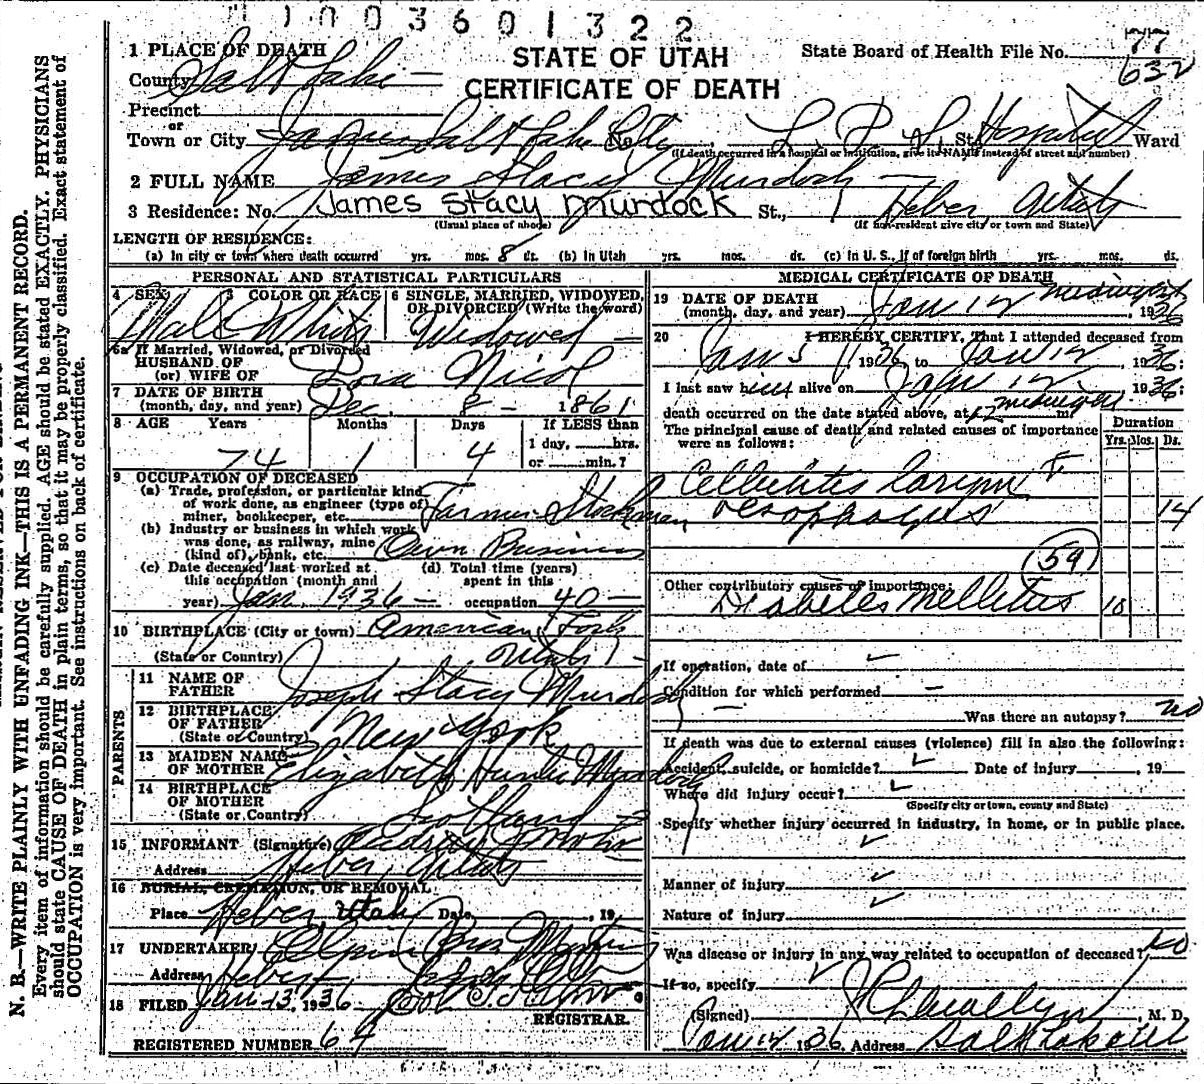 1003601322
1 PLACE OF DEATH
STATE OF UTAH
CERTIFICATE OF DEATH
State Board of Health File No. 77
632
County Salt Lake
Precinct
or
Town or City Salt Lake City No. L. D. S. St. Hospital Ward
(If death occurred in a hospital or institution, give its NAME instead of street and number)
2 FULL NAME James Stacy Murdock
3 Residence: No. James Stacy Murdock St., 1 Heber, Utah
(Usual place of abode) (If non-resident give city or town and State)
LENGTH OF RESIDENCE:
(a) In city or town where death occurred yrs. mos. 8 ds. (b) In Utah yrs. mos. ds. (c) In U. S., if of foreign birth yrs. mos. ds.
PERSONAL AND STATISTICAL PARTICULARS
4 SEX 5 COLOR OR RACE 6 SINGLE, MARRIED, WIDOWED, OR DIVORCED (Write the word)
Male White Widowed
6a If Married, Widowed, or Divorced
HUSBAND OF
(or) WIFE OF Nicol
7 DATE OF BIRTH
(month, day, and year) Dec. 8 - 1861
8 AGE Years Months Days If LESS than
1 day, hrs.
74 1 4 or min.?
9 OCCUPATION OF DECEASED
(a) Trade, profession, or particular kind
of work done, as engineer (type of
miner, bookkeeper, etc. Farmer Stockman
(b) Industry or business in which work
was done, as railway, mine
(kind of), bank, etc. Own Business
(c) Date deceased last worked at
this occupation (month and
year) Jan. 1936 - (d) Total time (years)
spent in this
occupation 40 -
10 BIRTHPLACE (City or town) American Fork
(State or Country) Utah
PARENTS
11 NAME OF
FATHER Joseph Stacy Murdock
12 BIRTHPLACE
OF FATHER
(State or Country) New York
13 MAIDEN NAME
OF MOTHER Elizabeth Hunter Murdock
14 BIRTHPLACE
OF MOTHER
(State or Country) Scotland
15 INFORMANT (Signature)
Address Heber, Utah
16 BURIAL, CREMATION, OR REMOVAL
Place Heber, Utah Date , 19
17 UNDERTAKER
Address Heber
18 FILED Jan 13, 1936
REGISTRAR.
REGISTERED NUMBER 64
MEDICAL CERTIFICATE OF DEATH
19 DATE OF DEATH
(month, day, and year) Jan 12 midnight, 1936
20 I HEREBY CERTIFY, That I attended deceased from
Jan 5, 1936 to Jan 12, 1936:
I last saw him alive on Jan 12, 1936:
death occurred on the date stated above, at 12 midnight m.
The principal cause of death and related causes of importance
were as follows:
Duration
Yrs. Mos. Ds.
Cellulitis larynx +
oesophagus 14
59
Other contributory causes of importance:
Diabetes Mellitus 18
If operation, date of
Condition for which performed
Was there an autopsy? no
If death was due to external causes (violence) fill in also the following:
Accident, suicide, or homicide? Date of injury , 19
Where did injury occur?
(Specify city or town, county and State)
Specify whether injury occurred in industry, in home, or in public place.
Manner of injury
Nature of injury
Was disease or injury in any way related to occupation of deceased? no
If so, specify
(Signed) , M. D.
Jan 12 1936, Address Salt Lake City
N. B.—WRITE PLAINLY WITH UNFADING INK—THIS IS A PERMANENT RECORD.
Every item of information should be carefully supplied. AGE should be stated EXACTLY. PHYSICIANS
should state CAUSE OF DEATH in plain terms, so that it may be properly classified. Exact statement of
OCCUPATION is very important. See instructions on back of certificate.